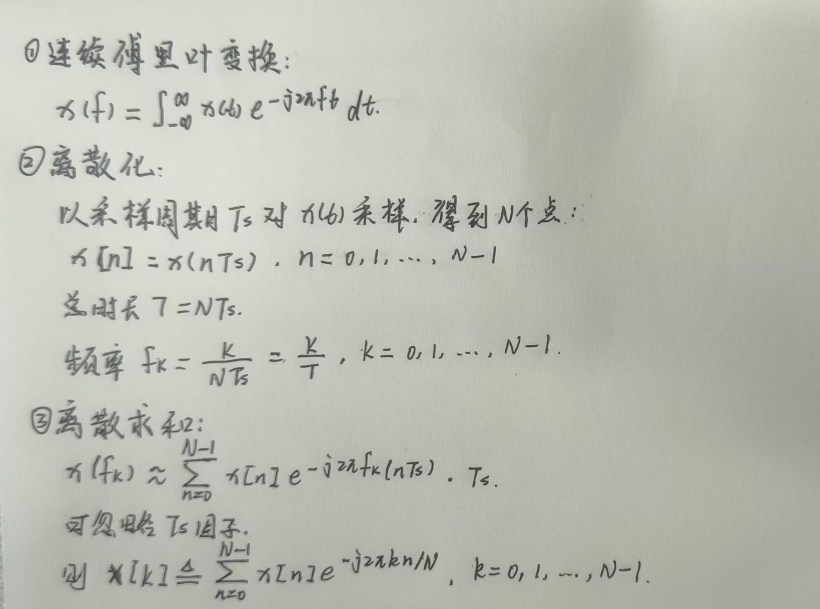 ①连续傅里叶变换:
x(f) = ∫_{-∞}^{∞} x(t) e^{-j2πft} dt.
②离散化:
以采样周期Ts对x(t)采样,得到N个点:
x[n] = x(nTs), n = 0, 1, ..., N-1
总时长 T = NTs.
频率 fk = k/(NTs) = k/T, k = 0, 1, ..., N-1.
③离散求和:
x(fk) ≈ ∑_{n=0}^{N-1} x[n] e^{-j2πfk(nTs)} · Ts.
可忽略Ts因子.
则 X[k] ≜ ∑_{n=0}^{N-1} x[n] e^{-j2πkn/N}, k = 0, 1, ..., N-1.